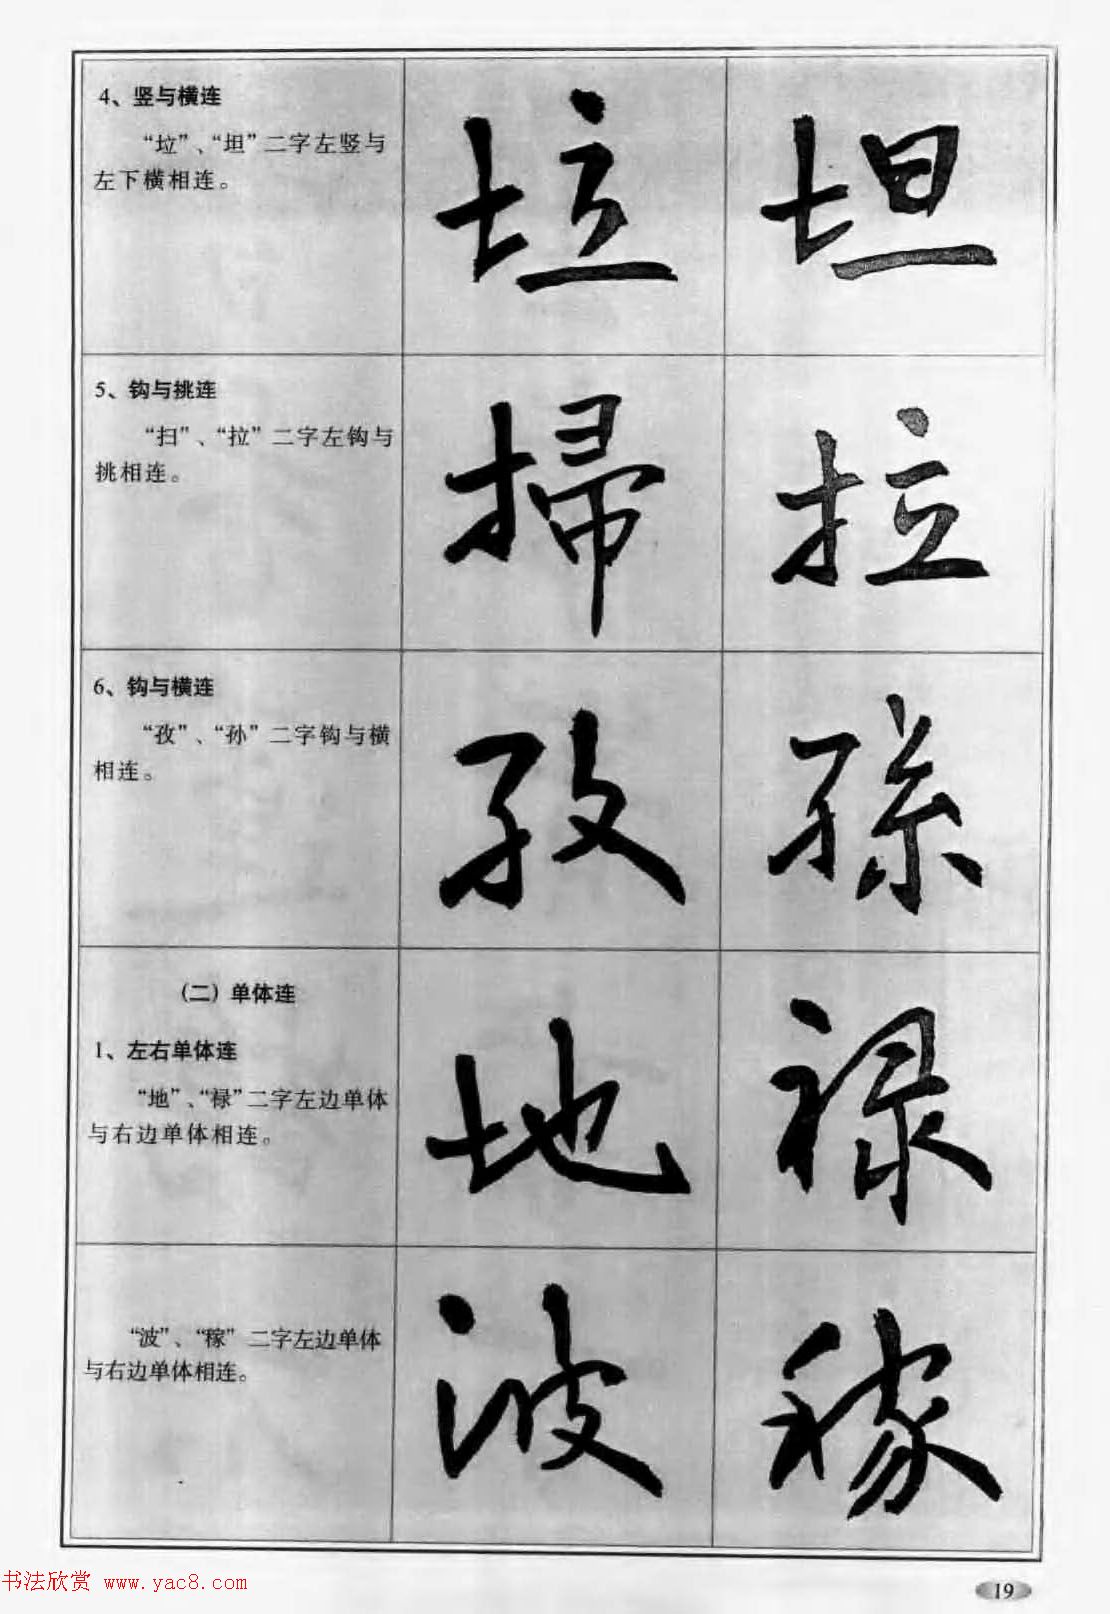 4、竖与横连
“垃”、“坦”二字左竖与
左下横相连。
垃 坦
5、钩与挑连
“扫”、“拉”二字左钩与
挑相连。
掃 拉
6、钩与横连
“孜”、“孙”二字钩与横
相连。
孜 孫
(二)单体连
1、左右单体连
“地”、“禄”二字左边单体
与右边单体相连。
地 禄
“波”、“稼”二字左边单体
与右边单体相连。
波 稼
书法欣赏 www.yac8.com
19